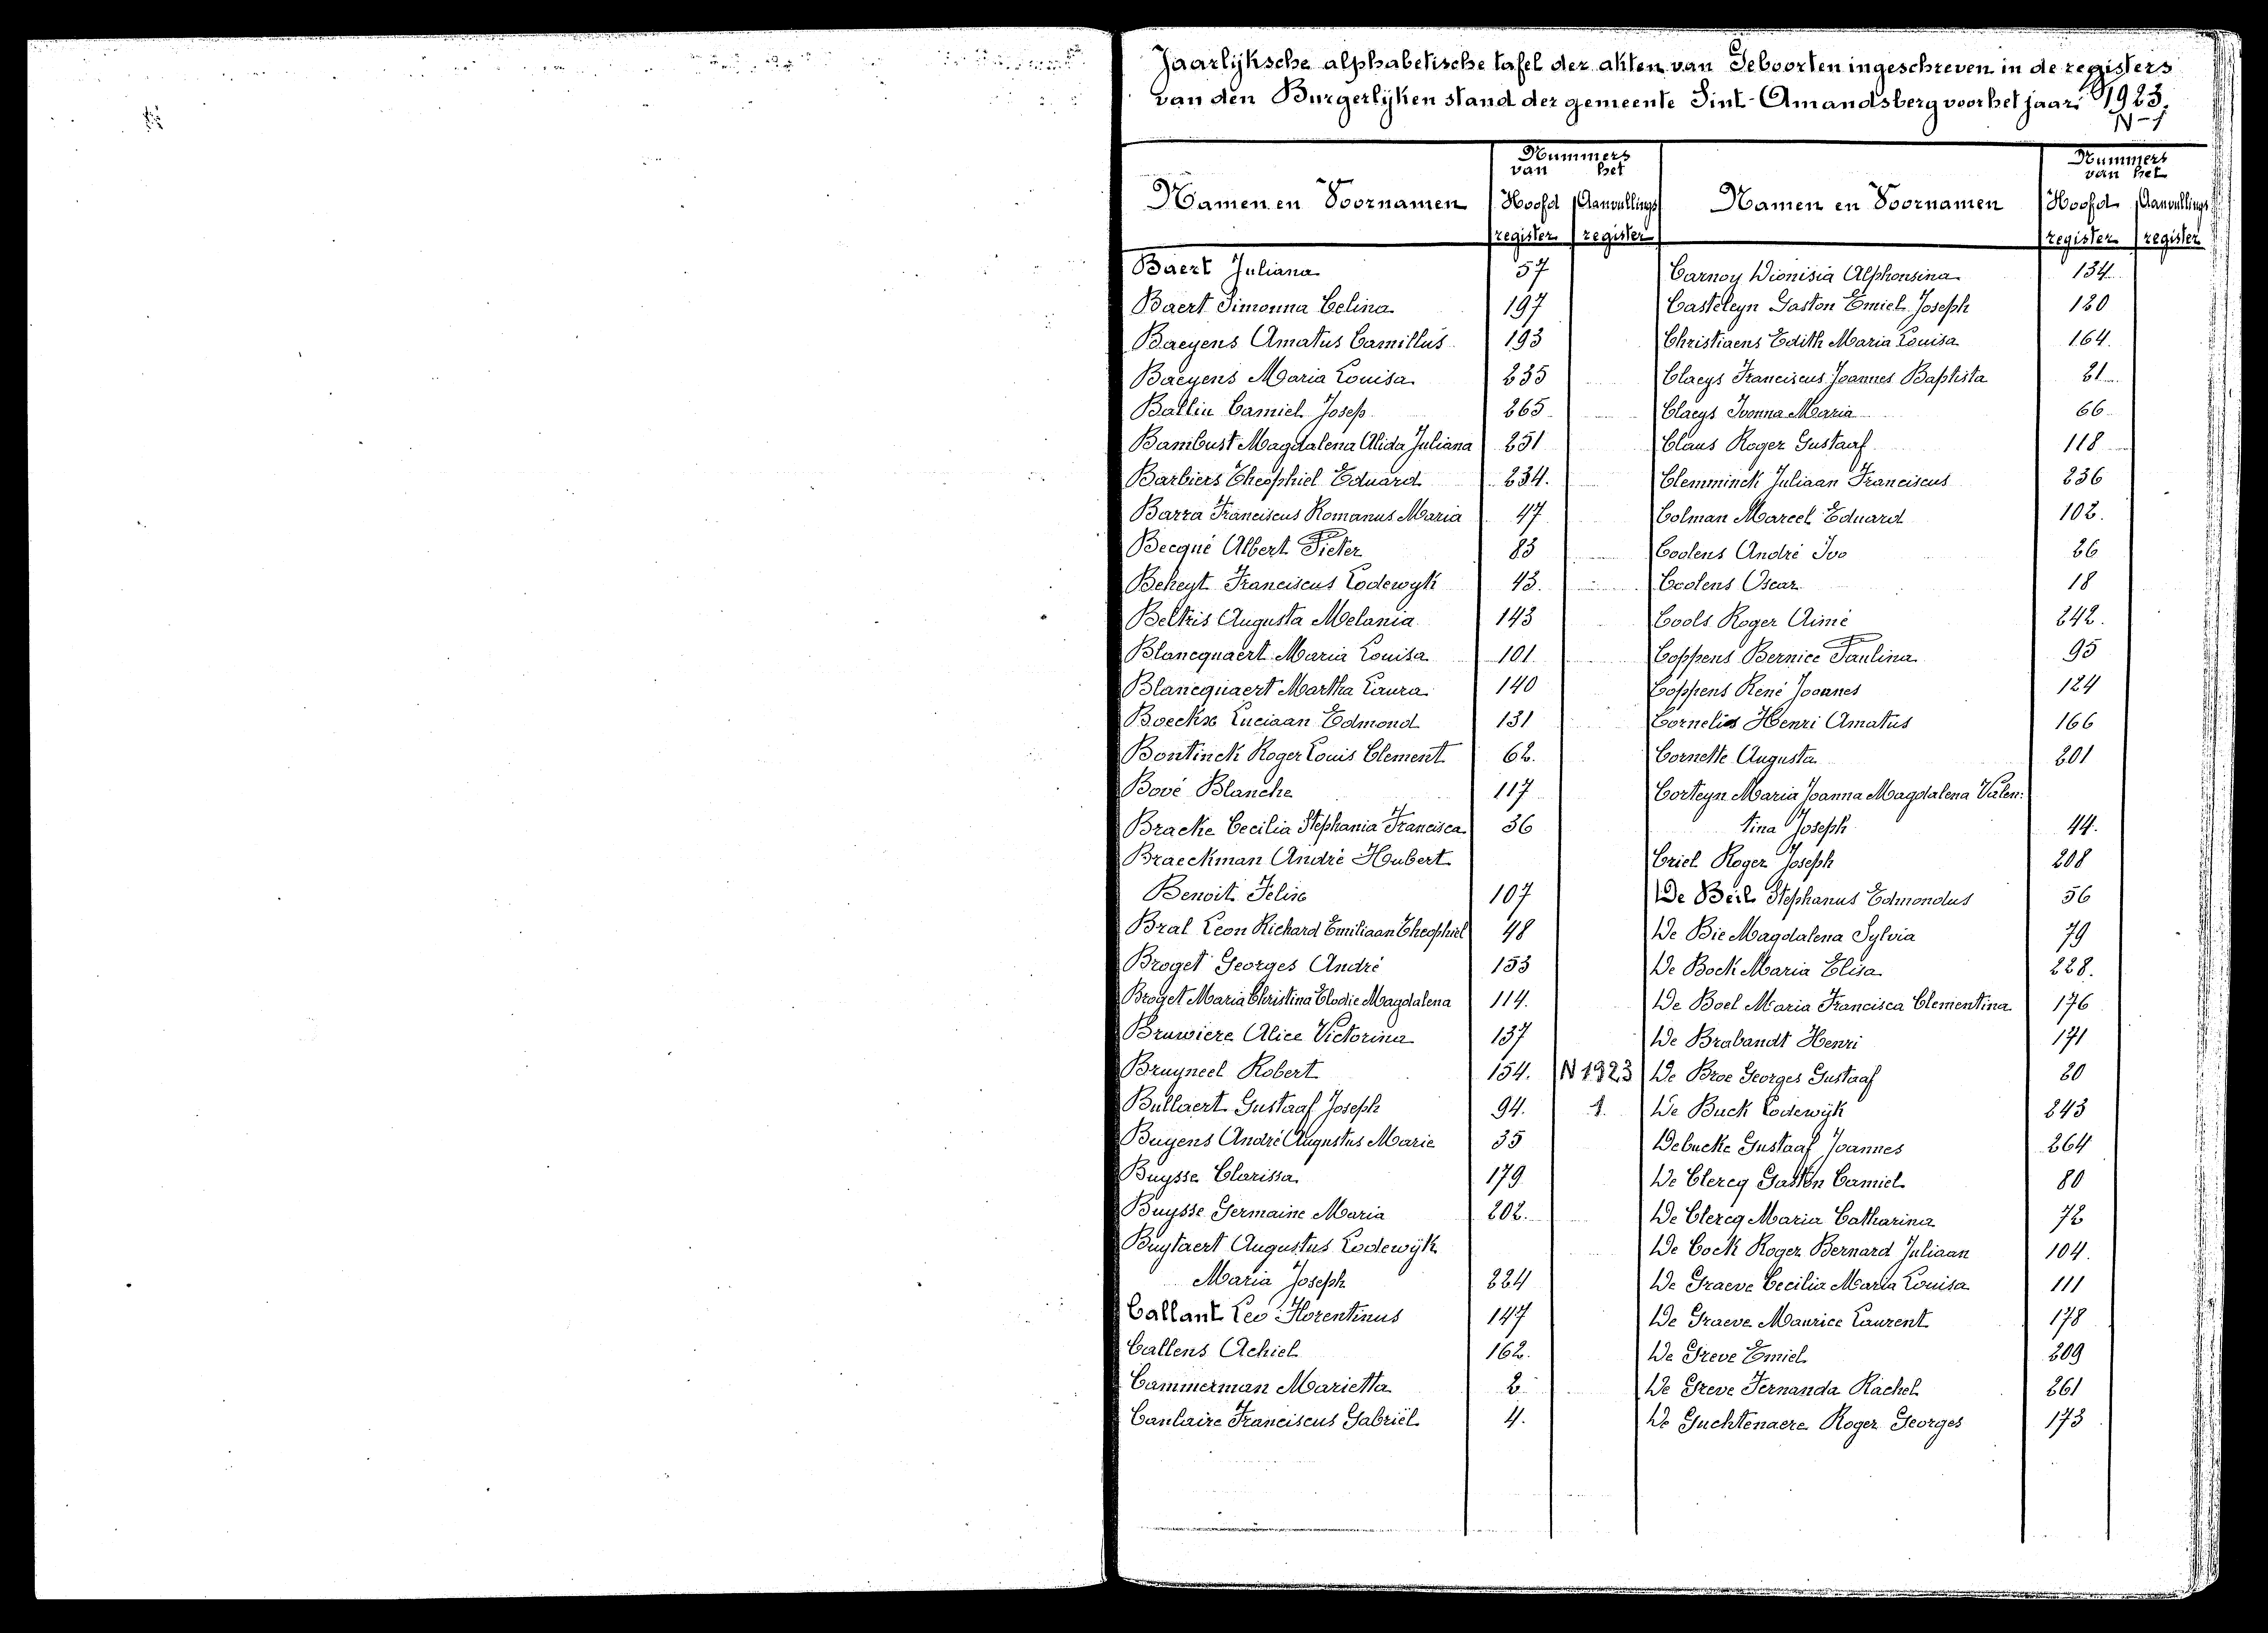 Jaarlijksche alphabetische tafel der akten van Geboorten ingeschreven in de registers
van den Burgerlijken stand der gemeente Sint-Amandsberg voor het jaar 1923.
N-1
Namen en Voornamen
Nummers
van het
Hoofd register
Aanvullings register
Namen en Voornamen
Nummers
van het
Hoofd register
Aanvullings register
Baert Juliana 57
Baert Simonna Celina 197
Baeyens Amatus Camillus 193
Baeyens Maria Louisa 235
Ballin Camiel Josep 265
Bambust Magdalena Alida Juliana 251
Barbiers Theophiel Eduard 234.
Barra Franciscus Romanus Maria 47
Becqué Albert Pieter 83
Beheyt Franciscus Lodewyk 43.
Beltris Augusta Melania 143
Blancquaert Maria Louisa 101
Blancquaert Martha Laura 140
Boeckx Luciaan Edmond 131
Bontinck Roger Louis Clement 62.
Bové Blanche 117
Bracke Cecilia Stephania Francisca 36
Braeckman André Hubert
Benoit Felix 107
Bral Leon Richard Emiliaan Theophiel 48
Broget Georges André 153
Broget Maria Christina Elodie Magdalena 114.
Bruwiere Alice Victorina 137
Bruyneel Robert 154. N 1923
Bullaert Gustaaf Joseph 94. 1.
Buyens André Augustus Marie 35
Buysse Clarissa 179
Buysse Germaine Maria 202.
Buytaert Augustus Lodewijk
Maria Joseph 224
Callant Leo Florentinus 147
Callens Achiel 162.
Cammerman Marietta 2
Canlaire Franciscus Gabriël 4.
Carnoy Dionisia Alphonsina 134
Casteleyn Gaston Emiel Joseph 120
Christiaens Edith Maria Louisa 164.
Claeys Franciscus Joannes Baptista 21
Claeys Ivonna Maria 66
Claus Roger Gustaaf 118
Clemminck Juliaan Franciscus 236
Colman Marcel Eduard 102.
Coolens André Ivo 26
Coolens Oscar 18
Cools Roger Aimé 242.
Coppens Bernice Paulina 95
Coppens René Joannes 124
Cornelis Henri Amatus 166
Cornette Augusta 201
Corteyn Maria Joanna Magdalena Valen:
tina Joseph 44.
Criel Roger Joseph 208
De Beil Stephanus Edmondus 56
De Bie Magdalena Sylvia 79
De Bock Maria Elisa 228.
De Boel Maria Francisca Clementina 176
De Brabandt Henri 171
De Broe Georges Gustaaf 20
De Buck Lodewijk 243
Debucke Gustaaf Joannes 264
De Clercq Gaston Camiel 80
De Clercq Maria Catharina 72
De Cock Roger Bernard Juliaan 104.
De Graeve Cecilia Maria Louisa 111
De Graeve Maurice Laurent 178
De Greve Emiel 209
De Greve Fernanda Rachel 261
De Guchtenaere Roger Georges 173